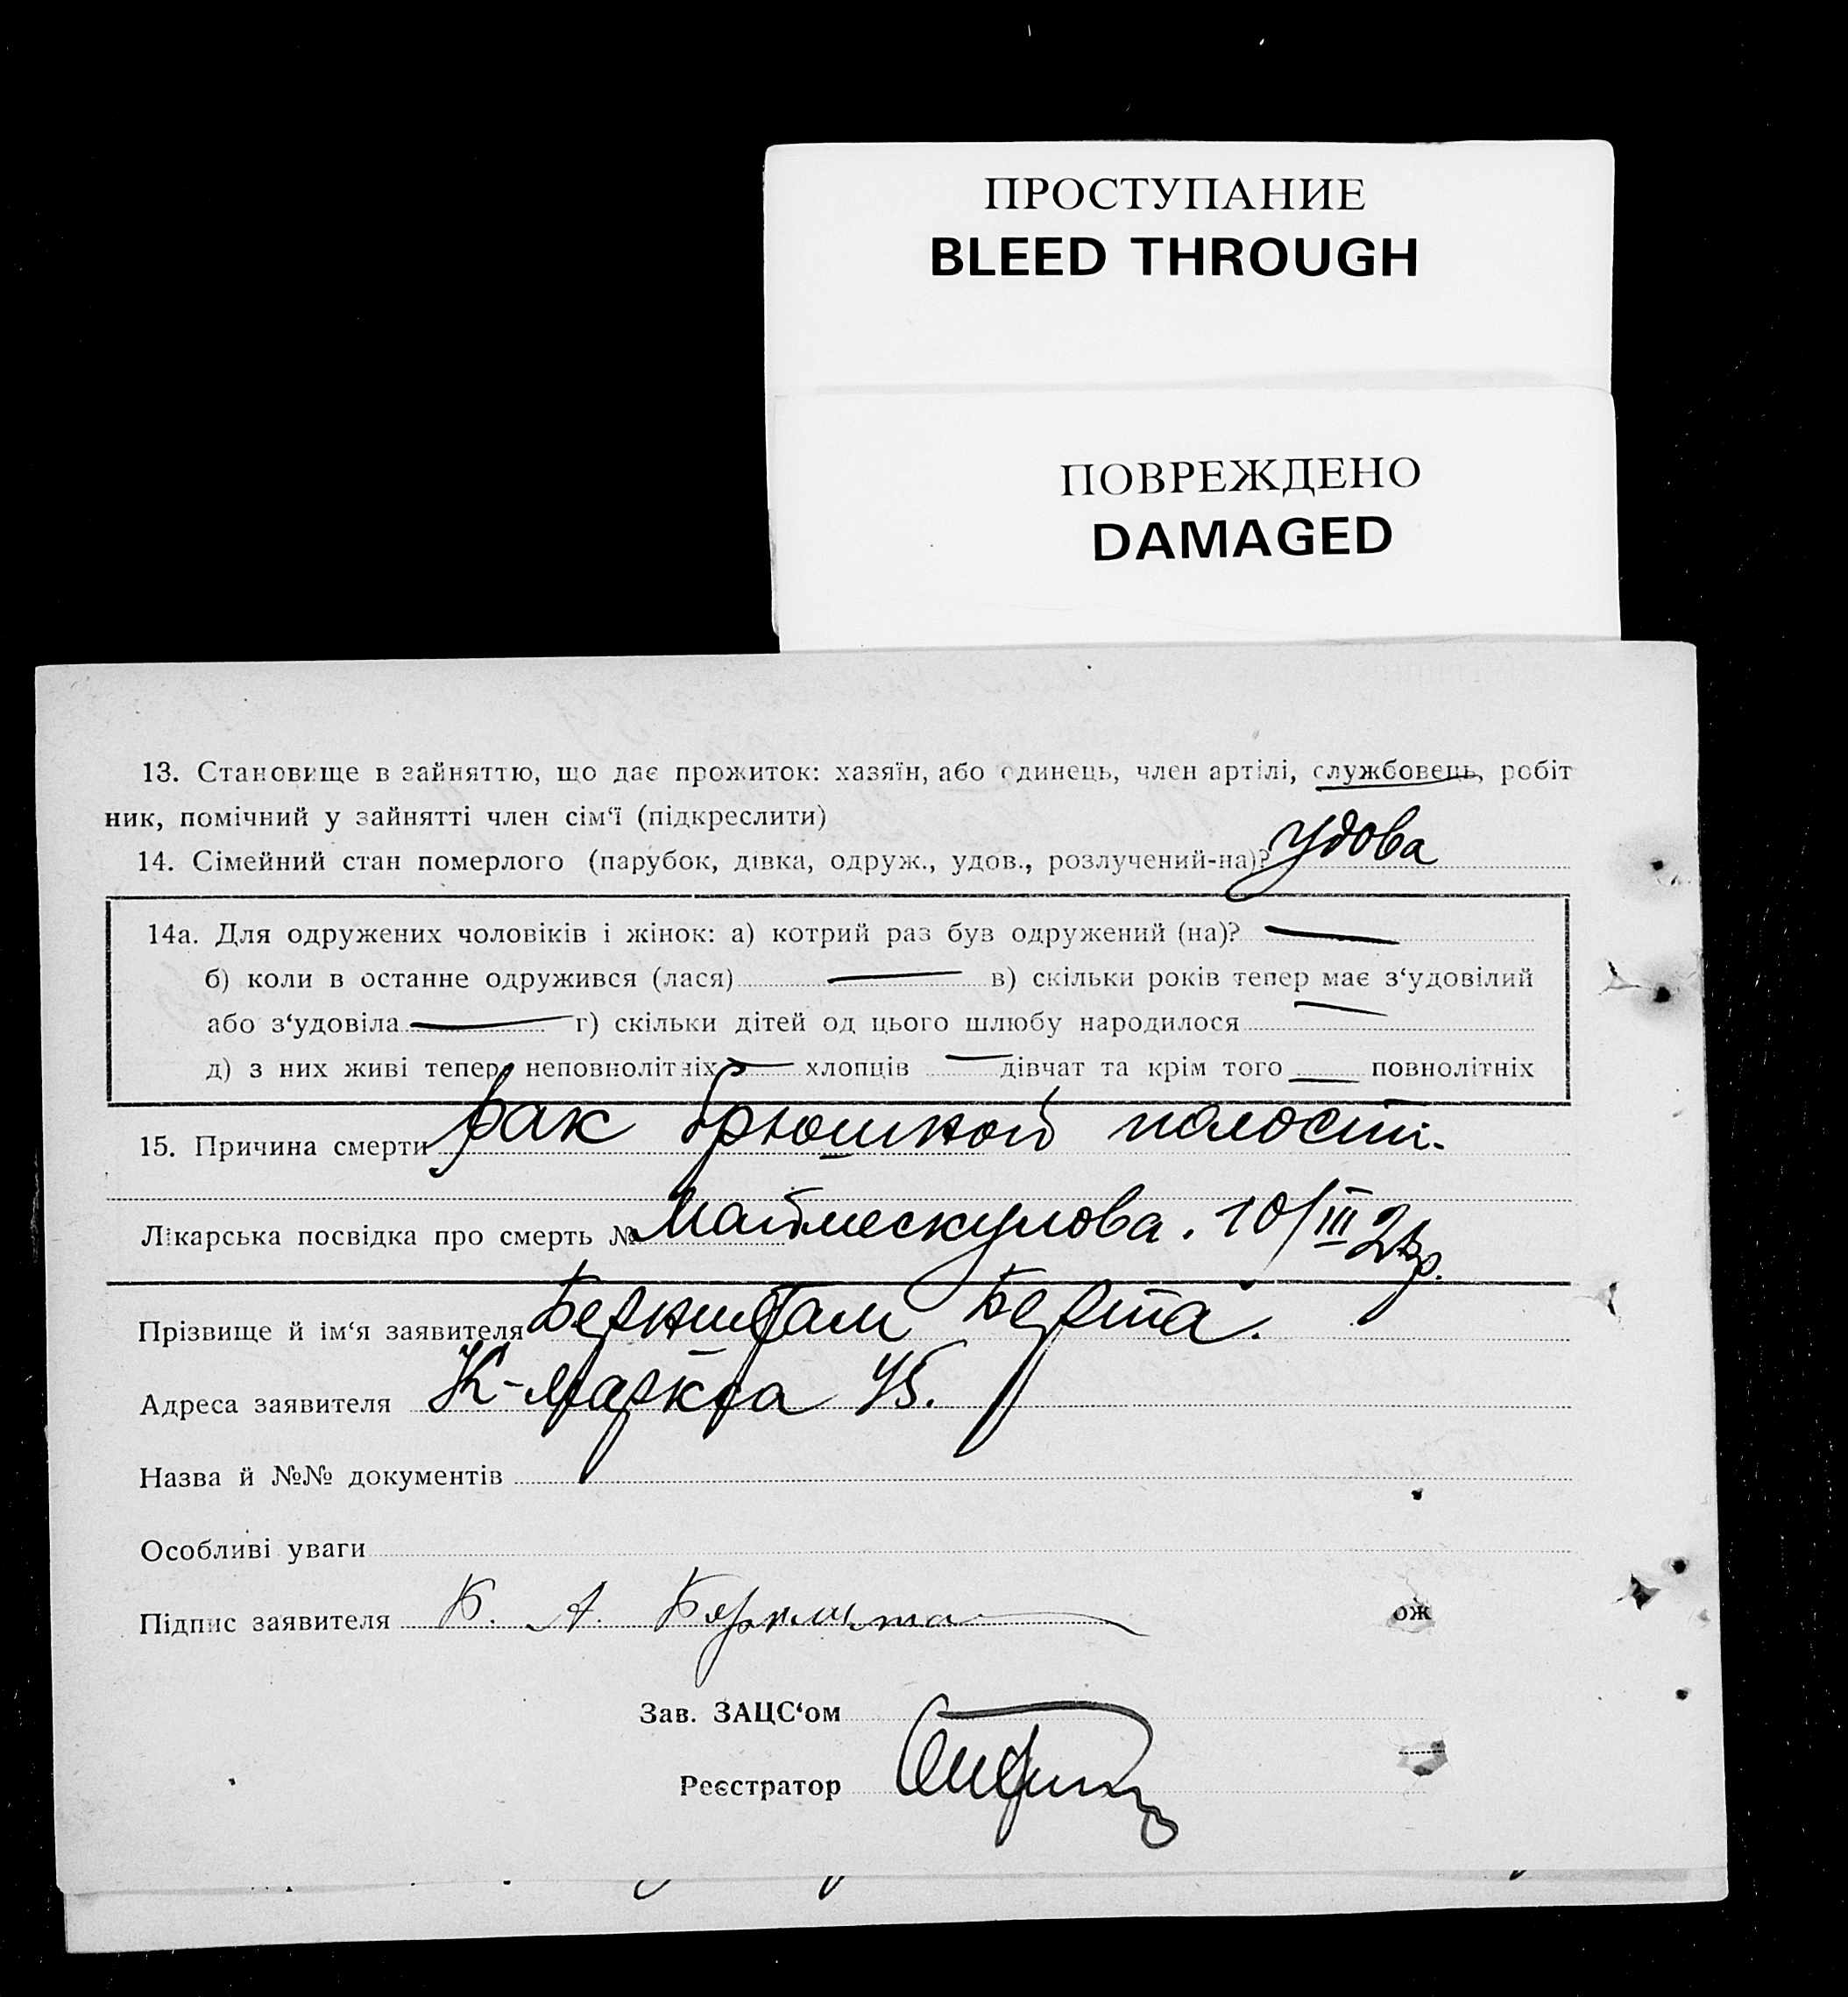 ПРОСТУПАНИЕ
BLEED THROUGH
ПОВРЕЖДЕНО
DAMAGED
13. Становище в зайняттю, що дає прожиток: хазяїн, або одинець, член артілі, службовець, робіт
ник, помічний у зайнятті член сім‘ї (підкреслити)
14. Сімейний стан померлого (парубок, дівка, одруж., удов., розлучений-на)? удова
14а. Для одружених чоловіків і жінок: а) котрий раз був одружений (на)? —
б) коли в останне одружився (лася) — в) скільки років тепер має з‘удовілий
або з‘удовіла — г) скільки дітей од цього шлюбу народилося —
д) з них живі тепер неповнолітніх — хлопців — дівчат та крім того — повнолітніх
15. Причина смерти рак брюшной полости.
Лікарська посвідка про смерть № 10/III
Прізвище й ім‘я заявителя Берта.
Адреса заявителя К-Маркса 45.
Назва й №№ документів
Особливі уваги
Підпис заявителя Б. А.
ож
Зав. ЗАЦС‘ом
Реєстратор